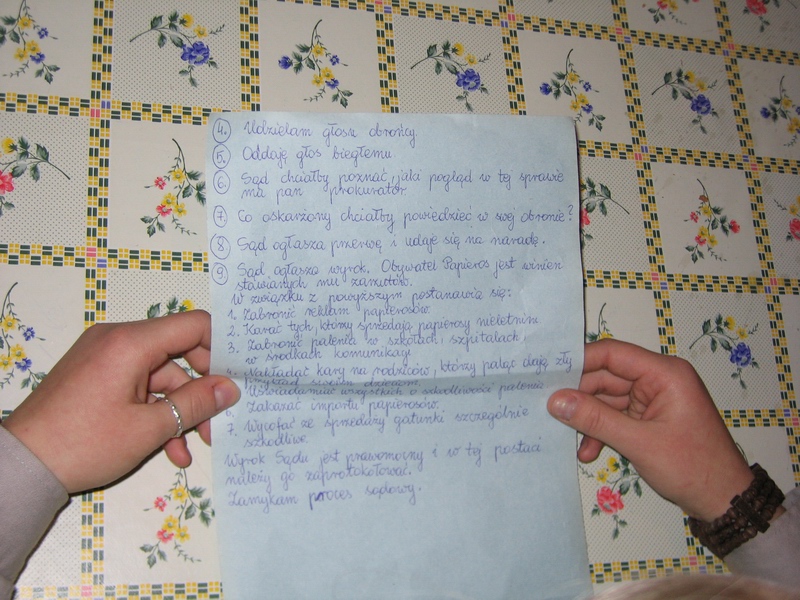 4. Udzielam głosu obrońcy.
5. Oddaję głos biegłemu
6. Sąd chciałby poznać, jaki pogląd w tej sprawie
ma pan prokurator
7. Co oskarżony chciałby powiedzieć w swej obronie?
8. Sąd ogłasza przerwę i udaje się na naradę.
9. Sąd ogłasza wyrok. Obywatel Papieros jest winien
stawianych mu zarzutów.
W związku z powyższym postanawia się:
1. Zabronić reklam papierosów.
2. Karać tych, którzy sprzedają papierosy nieletnim
3. Zabronić palenia w szkołach, szpitalach,
w środkach komunikacji
4. Nakładać kary na rodziców, którzy paląc dają zły
przykład swoim dzieciom.
Uświadamiać wszystkich o szkodliwości palenia
6. Zakazać importu papierosów.
7. Wycofać ze sprzedaży gatunki szczególnie
szkodliwe.
Wyrok Sądu jest prawomocny i w tej postaci
należy go zaprotokołować.
Zamykam proces sądowy.